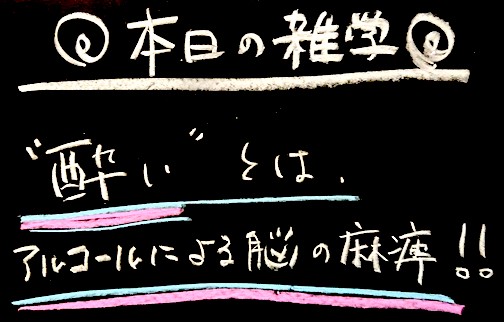 本日の雑学
"酔い"とは、
アルコールによる脳の麻痺!!